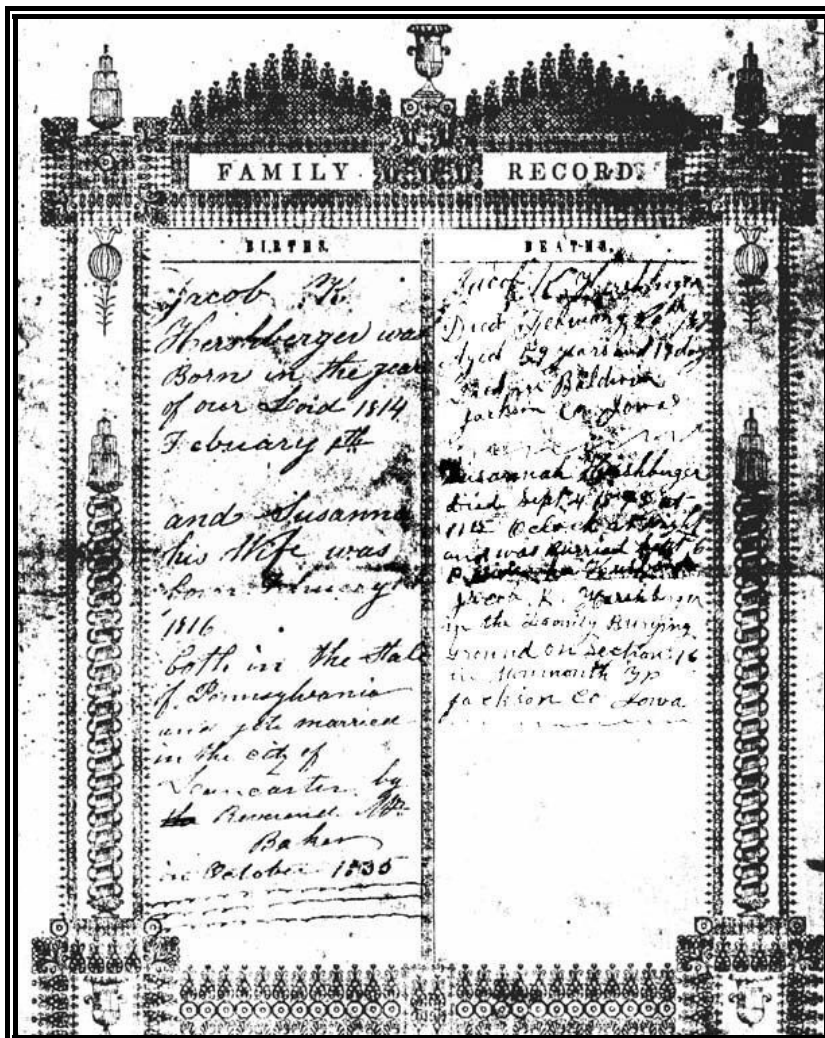 FAMILY RECORD
BIRTHS.
Jacob K
Hershberger was
Born in the year
of our Lord 1814
Febuary
and Susanna
his Wife was
born
1816
both in the State
of Pennsylvania
and got married
in the city of
Lancaster by
the Reverend Mr
Baker
in October 1835
DEATHS.
Jacob K Hershberger
Died
Aged 59 years and days
Baldwin
Jackson Co Iowa
Susannah Hershberger
died Sept 4 at
Oclock at night
and was Burried Sept 6
Husband
Jacob K. Hershberger
in the Burying
Ground on Section 16
in Monmouth Tp
Jackson Co Iowa